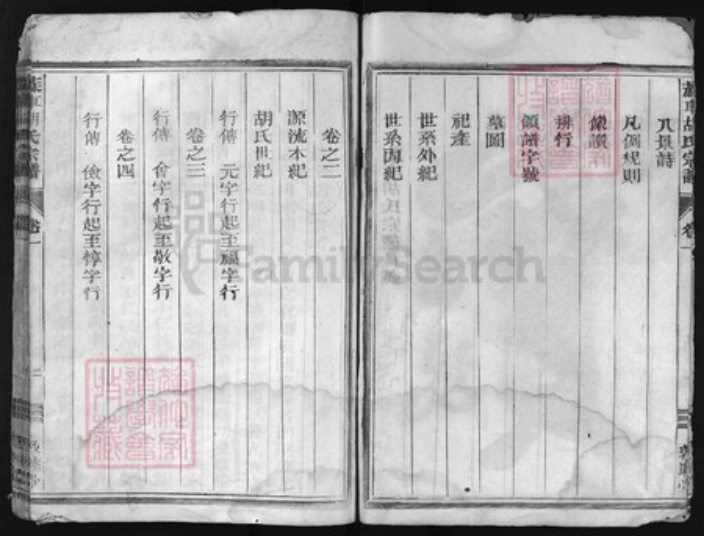 八景詩
凡例規則
像讚
排行
領譜字號
墓圖
祀產
世系外紀
世系內紀
卷之二
源流本紀
胡氏世紀
行傳 元字行起至福字行
卷之三
行傳 會字行起至敬字行
卷之四
行傳 儉字行起至惇字行
胡氏宗譜
卷一
FamilySearch